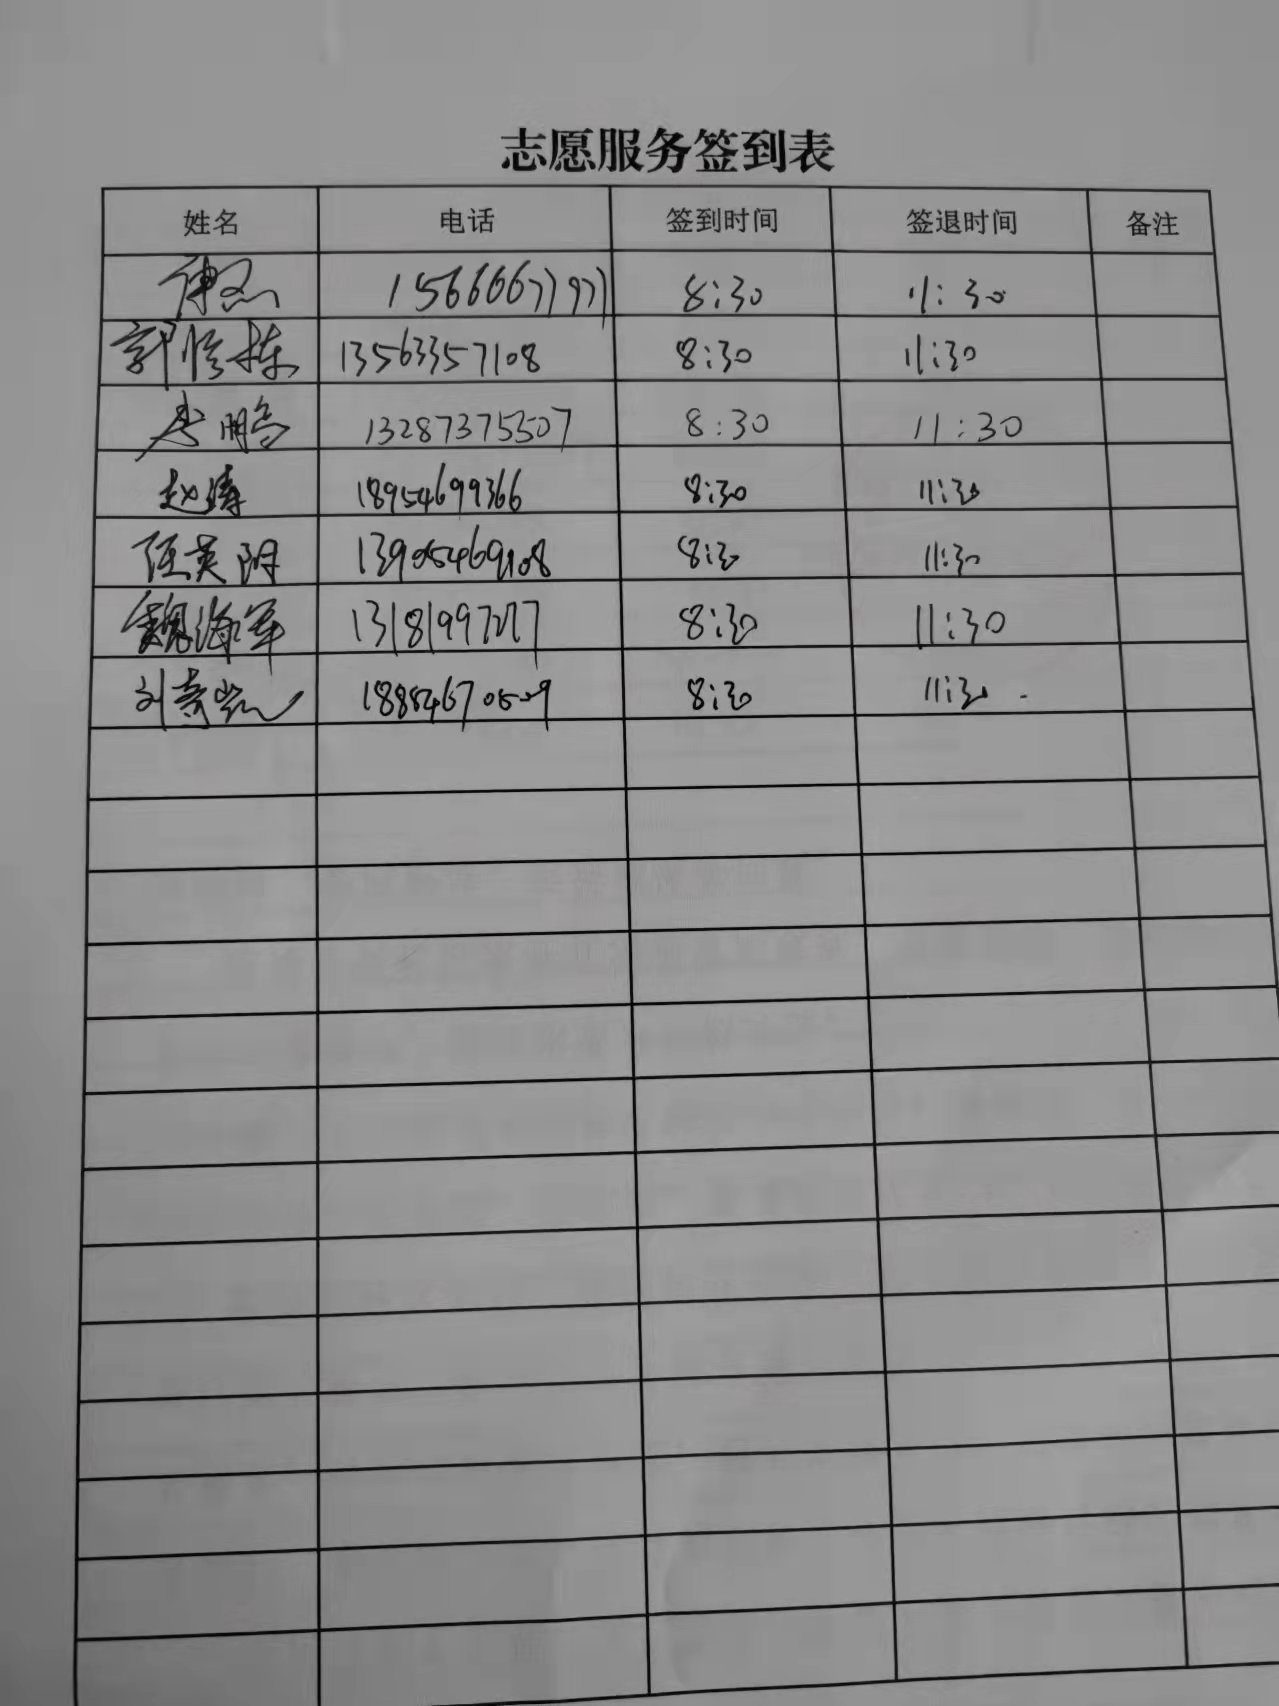 志愿服务签到表
姓名 电话 签到时间 签退时间 备注
8:30 11:30
郭修栋 13563357108 8:30 11:30
李鹏 13287375507 8:30 11:30
赵涛 18954699366 8:30 11:30
任英阴 13905469108 8:30 11:30
魏海军 8:30 11:30
刘 8:30 11:30